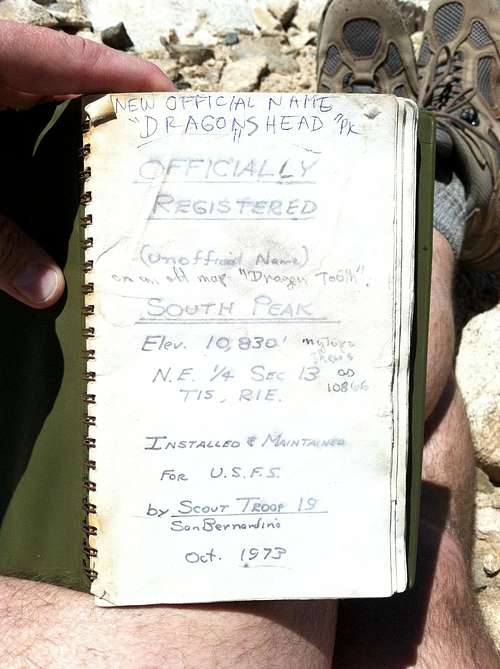 NEW OFFICIAL NAME
"DRAGONSHEAD" PK
OFFICIALLY
REGISTERED
(Unofficial Name)
on an old map "Dragon Tooth".
SOUTH PEAK
Elev. 10,830'
my topo
shows
as
10866
N.E. 1/4 SEC 13
T1S, R1E.
INSTALLED & MAINTAINED
FOR U.S.F.S.
by SCOUT TROOP 19
San Bernardino
Oct. 1973